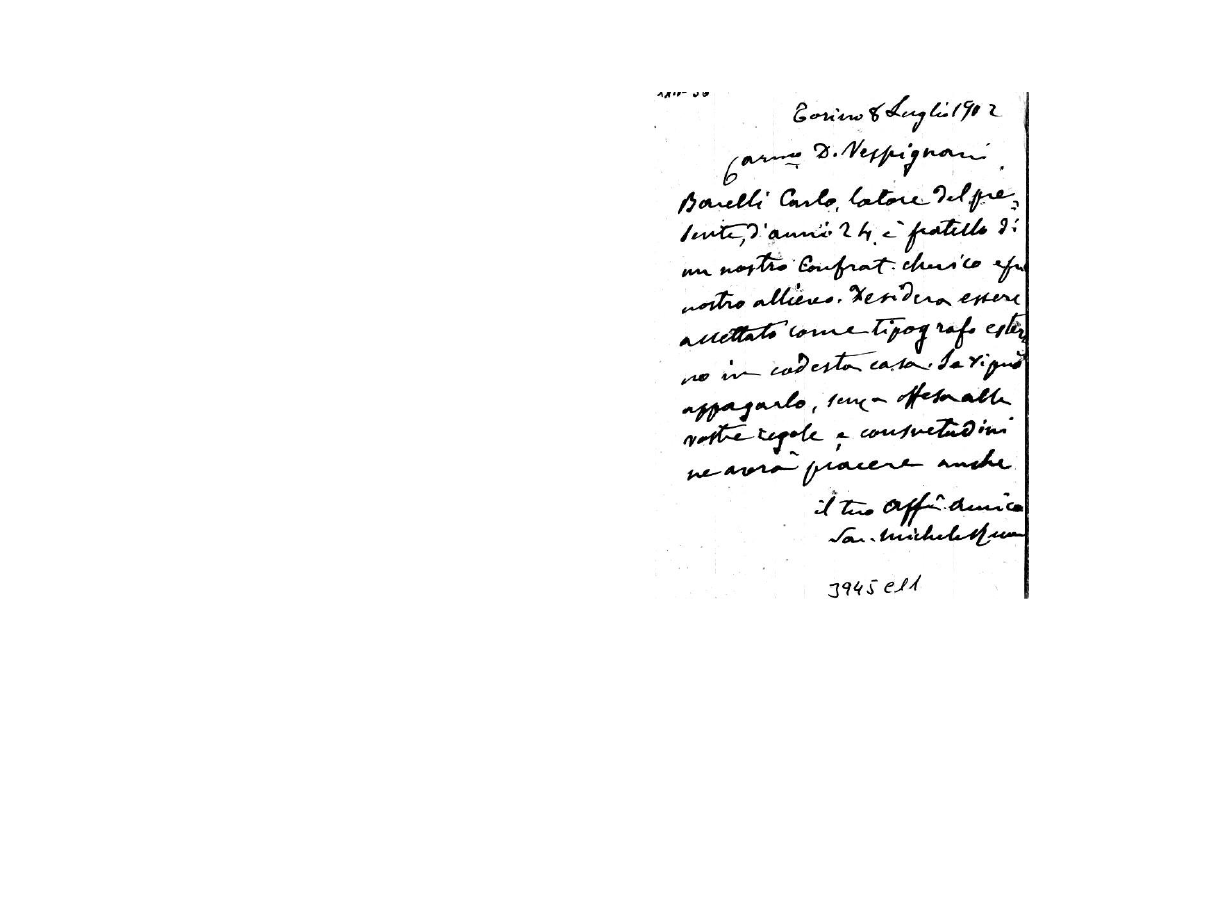 Torino 8 Luglio 1902
Carmo D. Vespignani
Borelli Carlo, latore del pre-
sente, d'anni 24, è fratello di
un nostro Confrat. cherico e fu
nostro allievo. Desidera essere
accettato come tipografo ester
no in codesta casa. Se si può
appagarlo, senza offesa alle
vostre regole e consuetudini
ne avrà piacere anche
il tuo Affmo. Amico
Sac. Michele Rua
3945 C11